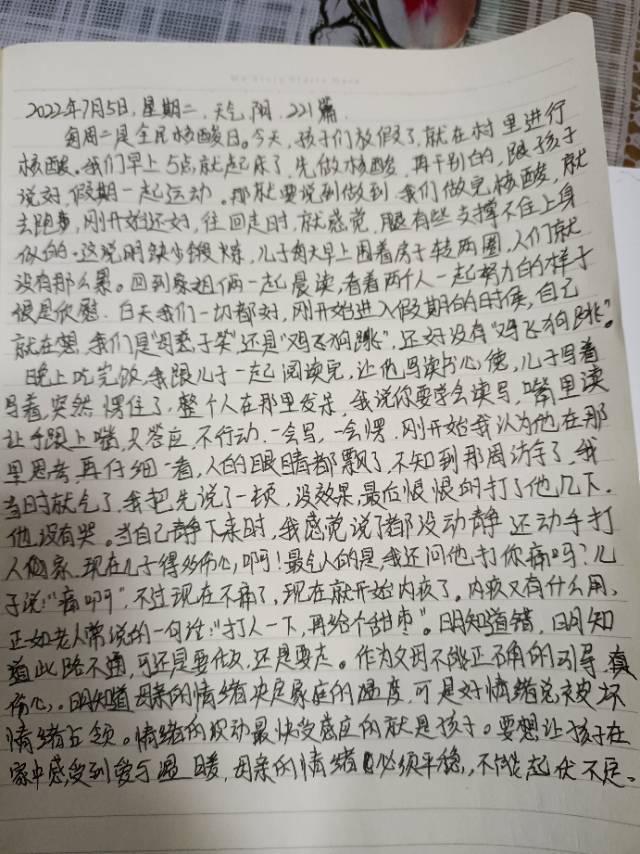 2022年7月5日,星期二,天气,阴,221篇
每周二是全民核酸日。今天,孩子们放假了,就在村里进行
核酸。我们早上5点就起床了,先做核酸,再干别的,跟孩子
说好,假期一起运动。那就要说到做到,我们做完核酸,就
去跑步,刚开始还好,往回走时,就感觉,腿有些支撑不住上身
似的。这说明缺少锻炼,儿子每天早上围着房子转两圈,人们就
没有那么累。回到家姐俩一起晨读,看着两个人一起努力的样子
很是欣慰.白天我们一切都好,刚开始进入假期的时候,自己
就在想,我们是"母慈子笑"还是"鸡飞狗跳",还好没有"鸡飞狗跳"。
晚上吃完饭,我跟儿子一起阅读完,让他写读书心德,儿子写着
写着,突然愣住了,整个人在那里发呆,我说你要学会读写,嘴里读
让手跟上嘴,又答应,不行动.一会写,一会愣,刚开始我认为他在那
里思考,再仔细一看,人的眼睛都飘了,不知到那周访字了,我
当时就气了,我把先说了一顿,没效果,最后恨恨的打了他几下.
他没有哭。当自己静下来时,我感觉说了都没动静还动手打
人家.现在儿子得多伤心,啊!最气人的是,我还问他打你痛吗?儿
子说:"痛啊",不过现在不痛了,现在就开始内疚了。内疚又有什么用,
正如老人常说的一句话:"打人一下,再给个甜枣"。明知道错,明知
道此路不通,可还是要做,还是要走。作为父母不能正确的引导,真
伤心。明知道母亲的情绪决定家庭的温度,可是好情绪总被坏
情绪占领。情绪的波动最快受感应的就是孩子。要想让孩子在
家中感受到爱与温暖,母亲的情绪必须平稳,不能起伏不定、